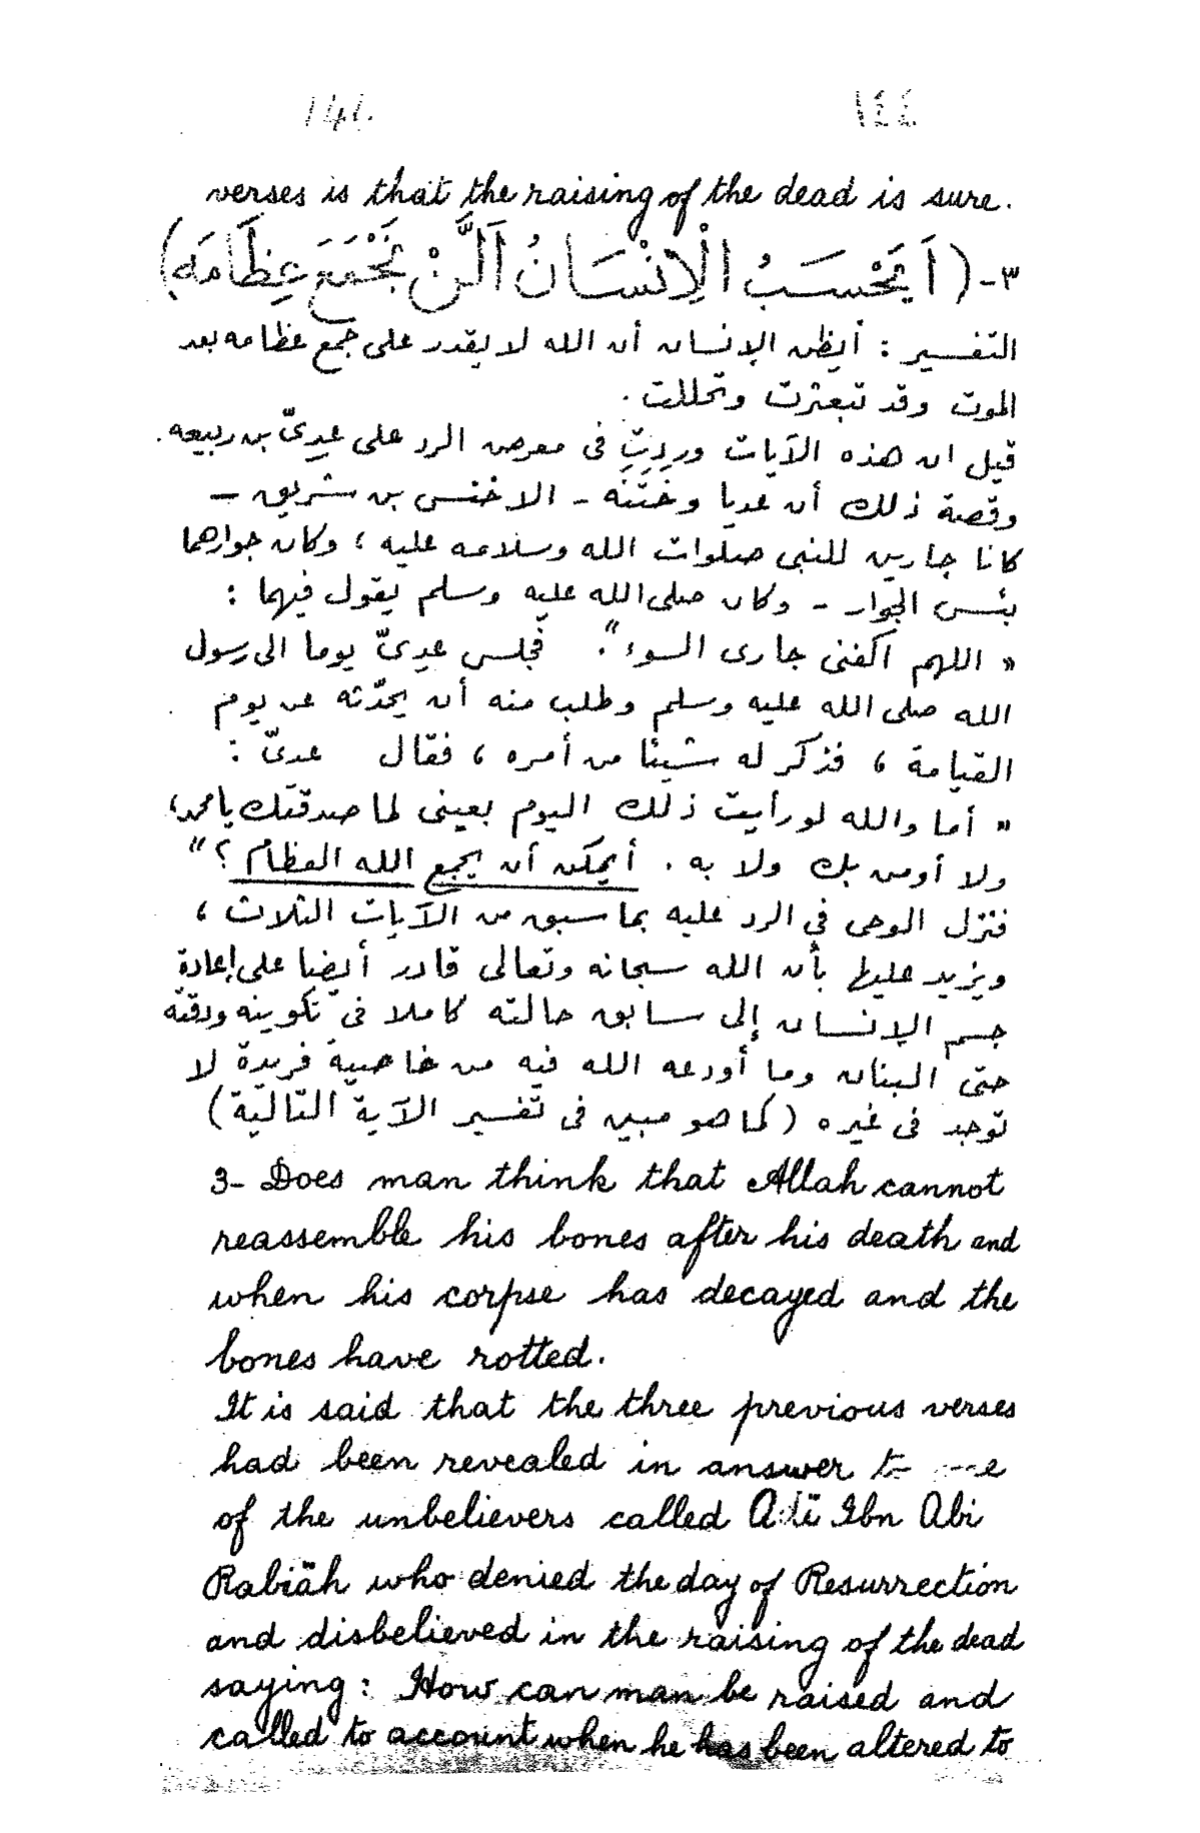 144 ١٤٤
verses is that the raising of the dead is sure.
٣- (أَيَحْسَبُ الْإِنْسَانُ أَلَّنْ نَجْمَعَ عِظَامَهُ)
التفسير : أيظن الإنسان أن الله لا يقدر على جمع عظامه بعد
الموت وقد تبعثرت وتحللت .
قيل ان هذه الآيات وردت فى معرض الرد على عدىّ بن ربيعه .
وقصة ذلك أن عديا وختنه - الاخنس بن شريق -
كانا جارين للنبى صلوات الله وسلامه عليه ، وكان جوارهما
بئس الجوار - وكان صلى الله عليه وسلم يقول فيهما :
" اللهم اكفنى جارى السوء ". فجلس عدىّ يوما الى رسول
الله صلى الله عليه وسلم وطلب منه أن يحدّثه عن يوم
القيامة ، فذكر له شيئا من أمره ، فقال عدىّ :
" أما والله لو رأيت ذلك اليوم بعينى لما صدقتك يا محمد،
ولا أومن بك ولا به . أيمكن أن يجمع الله العظام ؟ "
فنزل الوحى فى الرد عليه بما سبق من الآيات الثلاث ،
ويزيد عليها بأن الله سبحانه وتعالى قادر أيضا على إعادة
جسم الإنسان إلى سابق حالته كاملا فى تكوينه ودقته
حتى البنان وما أودعه الله فيه من خاصية فريدة لا
توجد فى غيره (كما هو مبين فى تفسير الآية التالية)
3- Does man think that Allah cannot
reassemble his bones after his death and
when his corpse has decayed and the
bones have rotted.
It is said that the three previous verses
had been revealed in answer to one
of the unbelievers called Adï Ibn Abi
Rabiäh who denied the day of Resurrection
and disbelieved in the raising of the dead
saying : How can man be raised and
called to account when he has been altered to